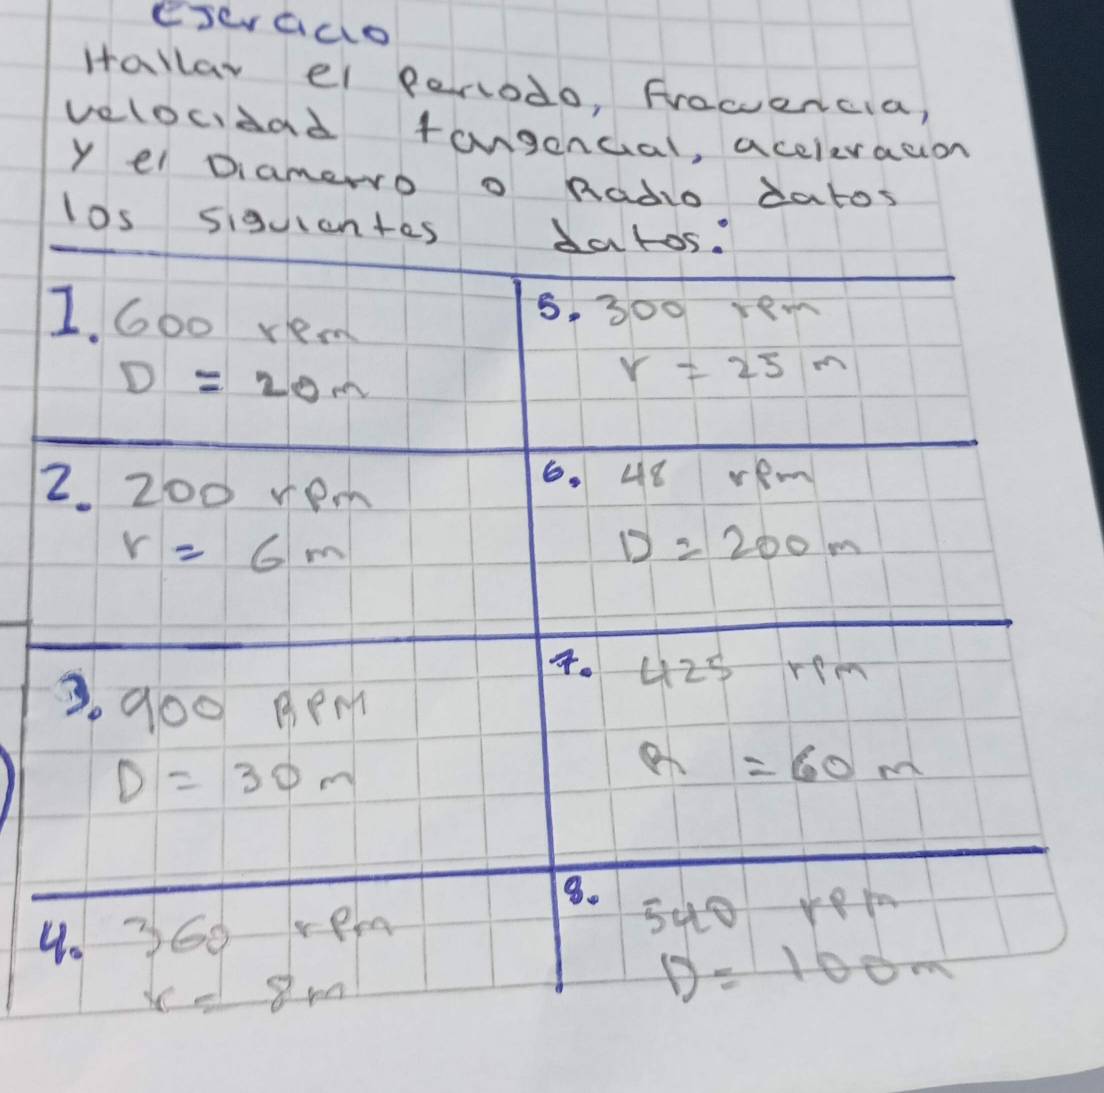 Ejercicio
Hallar el Periodo, Fracuencia,
velocidad tangencial, aceleracion
y el Diametro o Radio datos
los siguientes datos:
1. 600 rpm
D = 20m
2. 200 rpm
r = 6 m
3. 900 RPM
D = 30 m
4. 360 rpm
r = 8m
5. 300 rpm
r = 25 m
6. 48 rpm
D = 200 m
7. 425 rpm
R = 60 m
8. 540 rpm
D = 100m